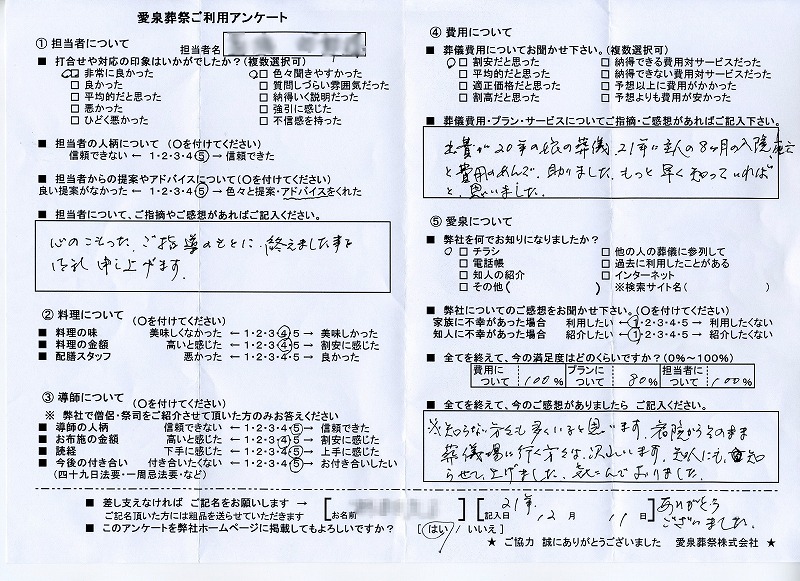 愛泉葬祭ご利用アンケート
① 担当者について
担当者名
■ 打合せや対応の印象はいかがでしたか?(複数選択可)
□ 非常に良かった □ 色々聞きやすかった
□ 良かった □ 質問しづらい雰囲気だった
□ 平均的だと思った □ 納得いく説明だった
□ 悪かった □ 強引に感じた
□ ひどく悪かった □ 不信感を持った
■ 担当者の人柄について (〇を付けてください)
信頼できない ← 1・2・3・4・5 → 信頼できた
■ 担当者からの提案やアドバイスについて(〇を付けてください)
良い提案がなかった ← 1・2・3・4・5 → 色々と提案・アドバイスをくれた
■ 担当者について、ご指摘やご感想があればご記入ください。
心のこもった、ご指導のもとに、終えました事
御礼 申し上げます。
② 料理について (〇を付けてください)
■ 料理の味 美味しくなかった ← 1・2・3・4・5 → 美味しかった
■ 料理の金額 高いと感じた ← 1・2・3・4・5 → 割安に感じた
■ 配膳スタッフ 悪かった ← 1・2・3・4・5 → 良かった
③ 導師について (〇を付けてください)
※ 弊社で僧侶・祭司をご紹介させて頂いた方のみお答えください
■ 導師の人柄 信頼できない ← 1・2・3・4・5 → 信頼できた
■ お布施の金額 高いと感じた ← 1・2・3・4・5 → 割安に感じた
■ 読経 下手に感じた ← 1・2・3・4・5 → 上手に感じた
■ 今後の付き合い 付き合いたくない ← 1・2・3・4・5 → お付き合いしたい
(四十九日法要・一周忌法要・など)
④ 費用について
■ 葬儀費用についてお聞かせ下さい。(複数選択可)
□ 割安だと思った □ 納得できる費用対サービスだった
□ 平均的だと思った □ 納得できない費用対サービスだった
□ 適正価格だと思った □ 予想以上に費用がかかった
□ 割高だと思った □ 予想よりも費用が安かった
■ 葬儀費用・プラン・サービスについてご指摘・ご感想があればご記入下さい。
出費が20年の の葬儀、21年に主人の8ヶ月の入院
と費用 、助りました。もっと早く知っていれば
と、思いました。
⑤ 愛泉について
■ 弊社を何でお知りになりましたか?
□ チラシ □ 他の人の葬儀に参列して
□ 電話帳 □ 過去に利用したことがある
□ 知人の紹介 □ インターネット
□ その他( ) ※検索サイト名( )
■ 弊社についてのご感想をお聞かせ下さい。(〇を付けてください)
家族に不幸があった場合 利用したい ← 1・2・3・4・5 → 利用したくない
知人に不幸があった場合 紹介したい ← 1・2・3・4・5 → 紹介したくない
■ 全てを終えて、今の満足度はどのくらいですか?(0%~100%)
費用について 100% プランについて 80% 担当者について 100%
■ 全てを終えて、今のご感想がありましたら ご記入ください。
※知らない方々も多くいると思います。病院からそのまま
葬儀場に行く方々は、沢山います。知人にも、知
らせて上げました。 おりました。
■ 差し支えなければ ご記名をお願いします →
ご記名頂いた方には粗品を送らせていただきます [お名前 ] [記入日 21年 12月 11日]
ありがとう
ございました。
■ このアンケートを弊社ホームページに掲載してもよろしいですか? [ はい / いいえ ]
★ ご協力 誠にありがとうございました 愛泉葬祭株式会社 ★